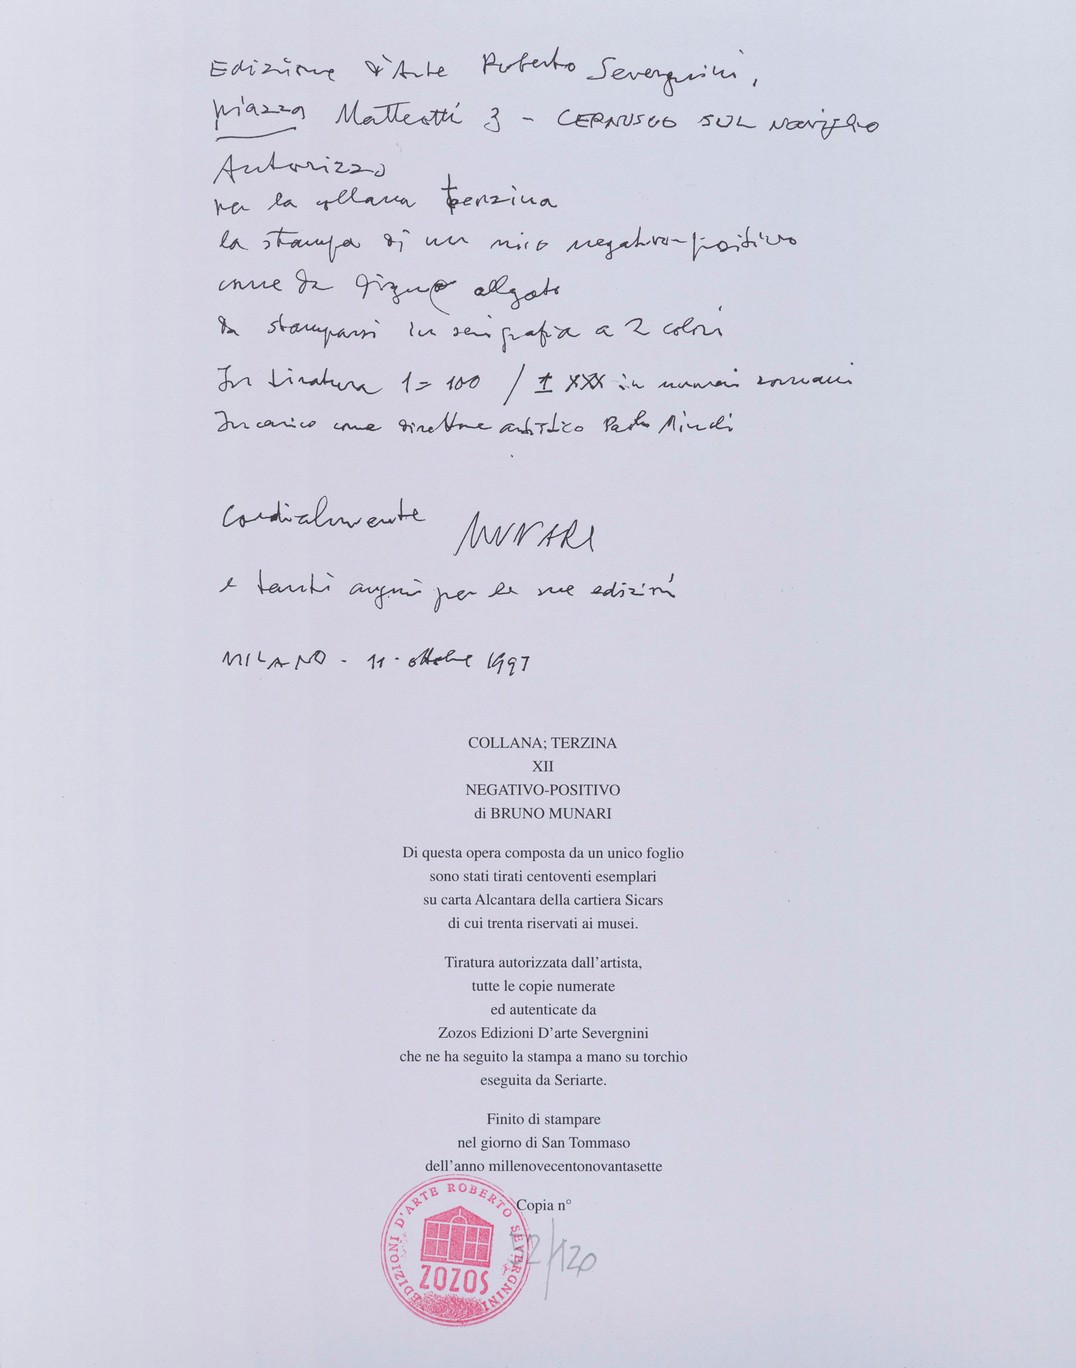 Edizione d'Arte Roberto Severgnini,
piazza Matteotti 3 - CERNUSCO SUL Naviglio
Autorizzo
per la collana terzina
la stampa di un mio negativo-positivo
come da disegno allegato
da stamparsi in serigrafia a 2 colori
In tiratura 1= 100 / ± XXX in numeri romani
Incarico come direttore artistico Paolo Minoli
Cordialmente MUNARI
e tanti auguri per le sue edizioni
MILANO - 11 - ottobre 1997
COLLANA; TERZINA
XII
NEGATIVO-POSITIVO
di BRUNO MUNARI
Di questa opera composta da un unico foglio
sono stati tirati centoventi esemplari
su carta Alcantara della cartiera Sicars
di cui trenta riservati ai musei.
Tiratura autorizzata dall'artista,
tutte le copie numerate
ed autenticate da
Zozos Edizioni D'arte Severgnini
che ne ha seguito la stampa a mano su torchio
eseguita da Seriarte.
Finito di stampare
nel giorno di San Tommaso
dell'anno millenovecentonovantasette
Copia n°
/120
EDIZIONI D'ARTE ROBERTO SEVERGNINI
ZOZOS